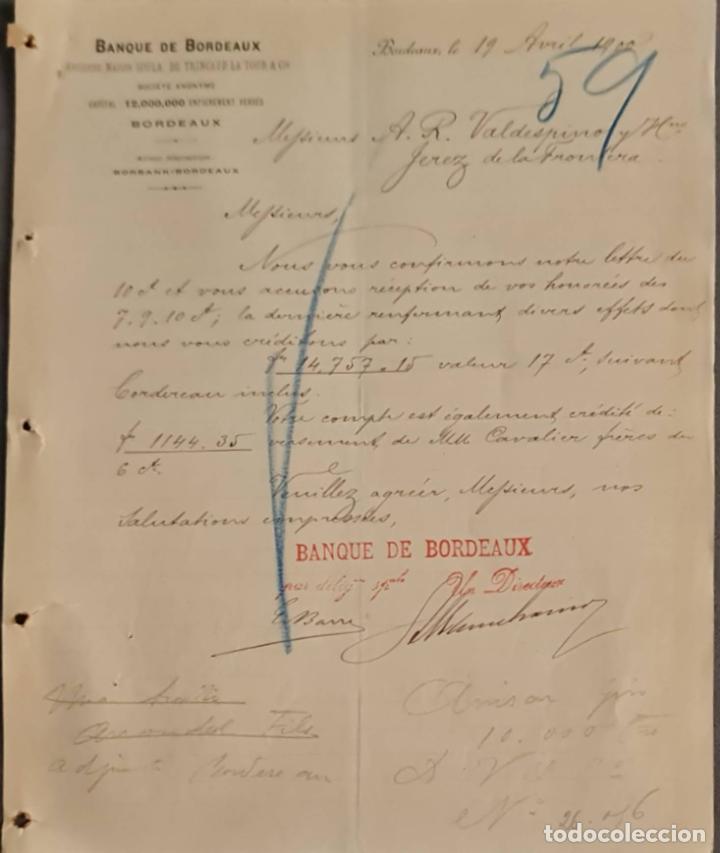 BANQUE DE BORDEAUX
ANCIENNE MAISON SOULA, DE TRINCAUD LA TOUR & Cie
SOCIÉTÉ ANONYME
CAPITAL 12,000,000 ENTIÈREMENT VERSÉS
BORDEAUX
BORBANK-BORDEAUX
Bordeaux, le 19 Avril 1900
59
Messieurs A. R. Valdespino y Hno
Jerez de la Frontera
Messieurs,
Nous vous confirmons notre lettre du
10 ct et vous accusons réception de vos honorées des
7. 9. 10 ct; la dernière renfermant divers effets dont
nous vous créditons par:
fr 14.757.15 valeur 17 ct, suivant
bordereau inclus.
Votre compte est également crédité de:
fr 1144.35 versement de MM Cavalier frères du
6 ct.
Veuillez agréer, Messieurs, nos
salutations empressées,
BANQUE DE BORDEAUX
par délégon sple Un Directeur
E. Barre
Avisar
10.000
adjunto Bordereau